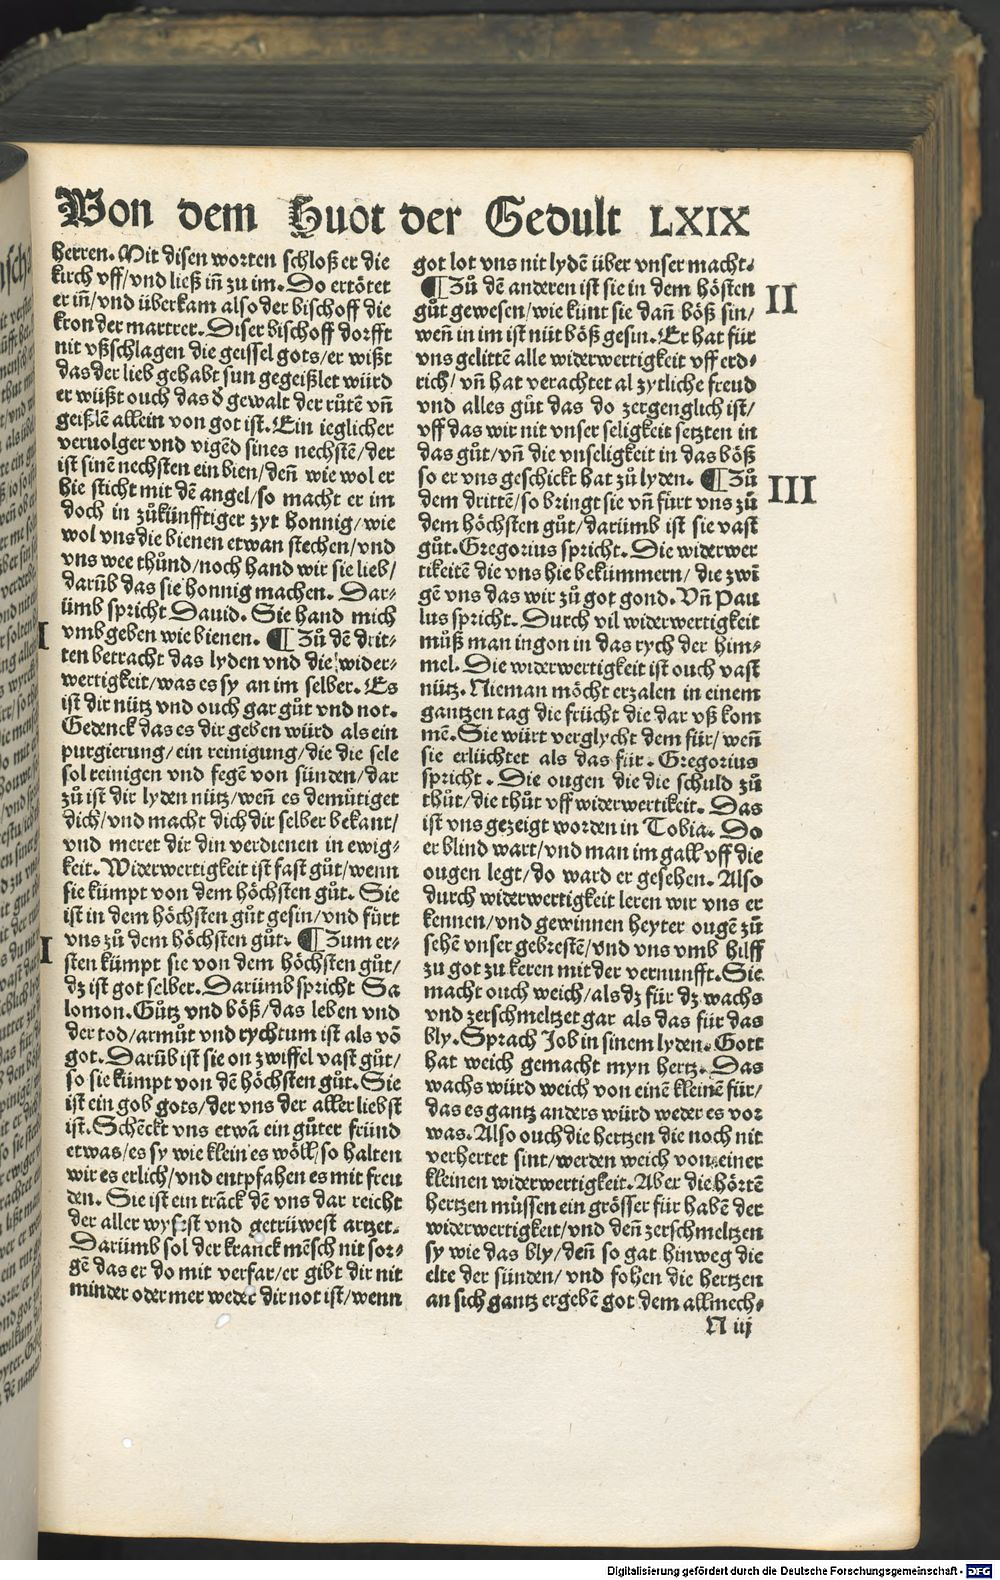 Von dem Huot der Gedult LXIX
herren. Mit disen worten schloß er die
kirch vff/vnd ließ in̄ zu im. Do ertötet
er in̄/vnd überkam also der bischoff die
kron der martrer. Diser bischoff dorfft
nit vßschlagen die geissel gots/er wißt
das der lieb gehabt sun gegeißlet würd
er wüßt ouch das dʼ gewalt der růtē vn̄
geißlē allein von got ist. Ein ieglicher
veruolger vnd vigēd sines nechstē/der
ist sinē nechsten ein bien/den̄ wie wol er
hie sticht mit dē angel/so macht er im
doch in zůkünfftiger zyt honnig/wie
wol vns die bienen etwan stechen/vnd
vns wee thůnd/noch hand wir sie lieb/
darūb das sie honnig machen. Dar-
ümb spricht Dauid. Sie hand mich
vmbgeben wie bienen. ¶ Zů dē drit-
ten betracht das lyden vnd die wider-
wertigkeit/was es sy an im selber. Es
ist dir nütz vnd ouch gar gůt vnd not.
Gedenck das es dir geben würd als ein
purgierung/ein reinigung/die die sele
sol reinigen vnd fegē von sünden/dar
zů ist dir lyden nütz/wen̄ es demütiget
dich/vnd macht dich dir selber bekant/
vnd meret dir din verdienen in ewig-
keit. Widerwertigkeit ist fast gůt/wenn
sie kümpt von dem höchsten gůt. Sie
ist in dem höchsten gůt gesin/vnd fürt
vns zů dem höchsten gůt. ¶ Zum er-
sten kümpt sie von dem höchsten gůt/
dz ist got selber. Darümb spricht Sa
lomon. Gůtz vnd böß/das leben vnd
der tod/armůt vnd rychtum ist als vō
got. Darūb ist sie on zwiffel vast gůt/
so sie kümpt von dē höchsten gůt. Sie
ist ein gob gots/der vns der aller liebst
ist. Schēckt vns etwā ein gůter fründ
etwas/es sy wie klein es wöll/so halten
wir es erlich/vnd entpfahen es mit freu
den. Sie ist ein trāck dē vns dar reicht
der aller wysest vnd getrüwest artzet.
Darümb sol der kranck mēsch nit sor-
gē das er do mit verfar/er gibt dir nit
minder oder mer weder dir not ist/wenn
got lot vns nit lydē über vnser macht.
¶ Zů dē anderen ist sie in dem hösten
gůt gewesen/wie künt sie dan̄ böß sin/
wen̄ in im ist nüt böß gesin. Er hat für
vns gelittē alle widerwertigkeit vff erd-
rich/vn̄ hat verachtet al zytliche freud
vnd alles gůt das do zergenglich ist/
vff das wir nit vnser seligkeit setzten in
das gůt/vn̄ die vnseligkeit in das böß
so er vns geschickt hat zů lyden. ¶ Zů
dem drittē/so bringt sie vn̄ fürt vns zů
dem höchsten gůt/darümb ist sie vast
gůt. Gregorius spricht. Die widerwer
tikeitē die vns hie bekümmern/die zwī
gē vns das wir zů got gond. Vn̄ Pau
lus spricht. Durch vil widerwertigkeit
můß man ingon in das rych der him-
mel. Die widerwertigkeit ist ouch vast
nütz. Nieman möcht erzalen in einem
gantzen tag die frücht die dar vß kom
mē. Sie würt verglycht dem für/wen̄
sie erlüchtet als das für. Gregorius
spricht. Die ougen die die schuld zů
thůt/die thůt vff widerwertikeit. Das
ist vns gezeigt worden in Tobia. Do
er blind wart/vnd man im gall vff die
ougen legt/do ward er gesehen. Also
durch widerwertigkeit leren wir vns er
kennen/vnd gewinnen heyter ougē zů
sehē vnser gebrestē/vnd vns vmb hilff
zu got zu keren mit der vernunfft. Sie
macht ouch weich/als dz für dz wachs
vnd zerschmeltzet gar als das für das
bly. Sprach Job in sinem lyden. Gott
hat weich gemacht myn hertz. Das
wachs würd weich von einē kleinē für/
das es gantz anders würd weder es vor
was. Also ouch die hertzen die noch nit
verhertet sint/werden weich von einer
kleinen widerwertigkeit. Aber die hörtē
hertzen müssen ein grösser für habē der
widerwertigkeit/vnd den̄ zerschmeltzen
sy wie das bly/den̄ so gat hinweg die
elte der sünden/vnd fohen die hertzen
an sich gantz ergebē got dem allmech-
N iij
II
III
Digitalisierung gefördert durch die Deutsche Forschungsgemeinschaft - DFG